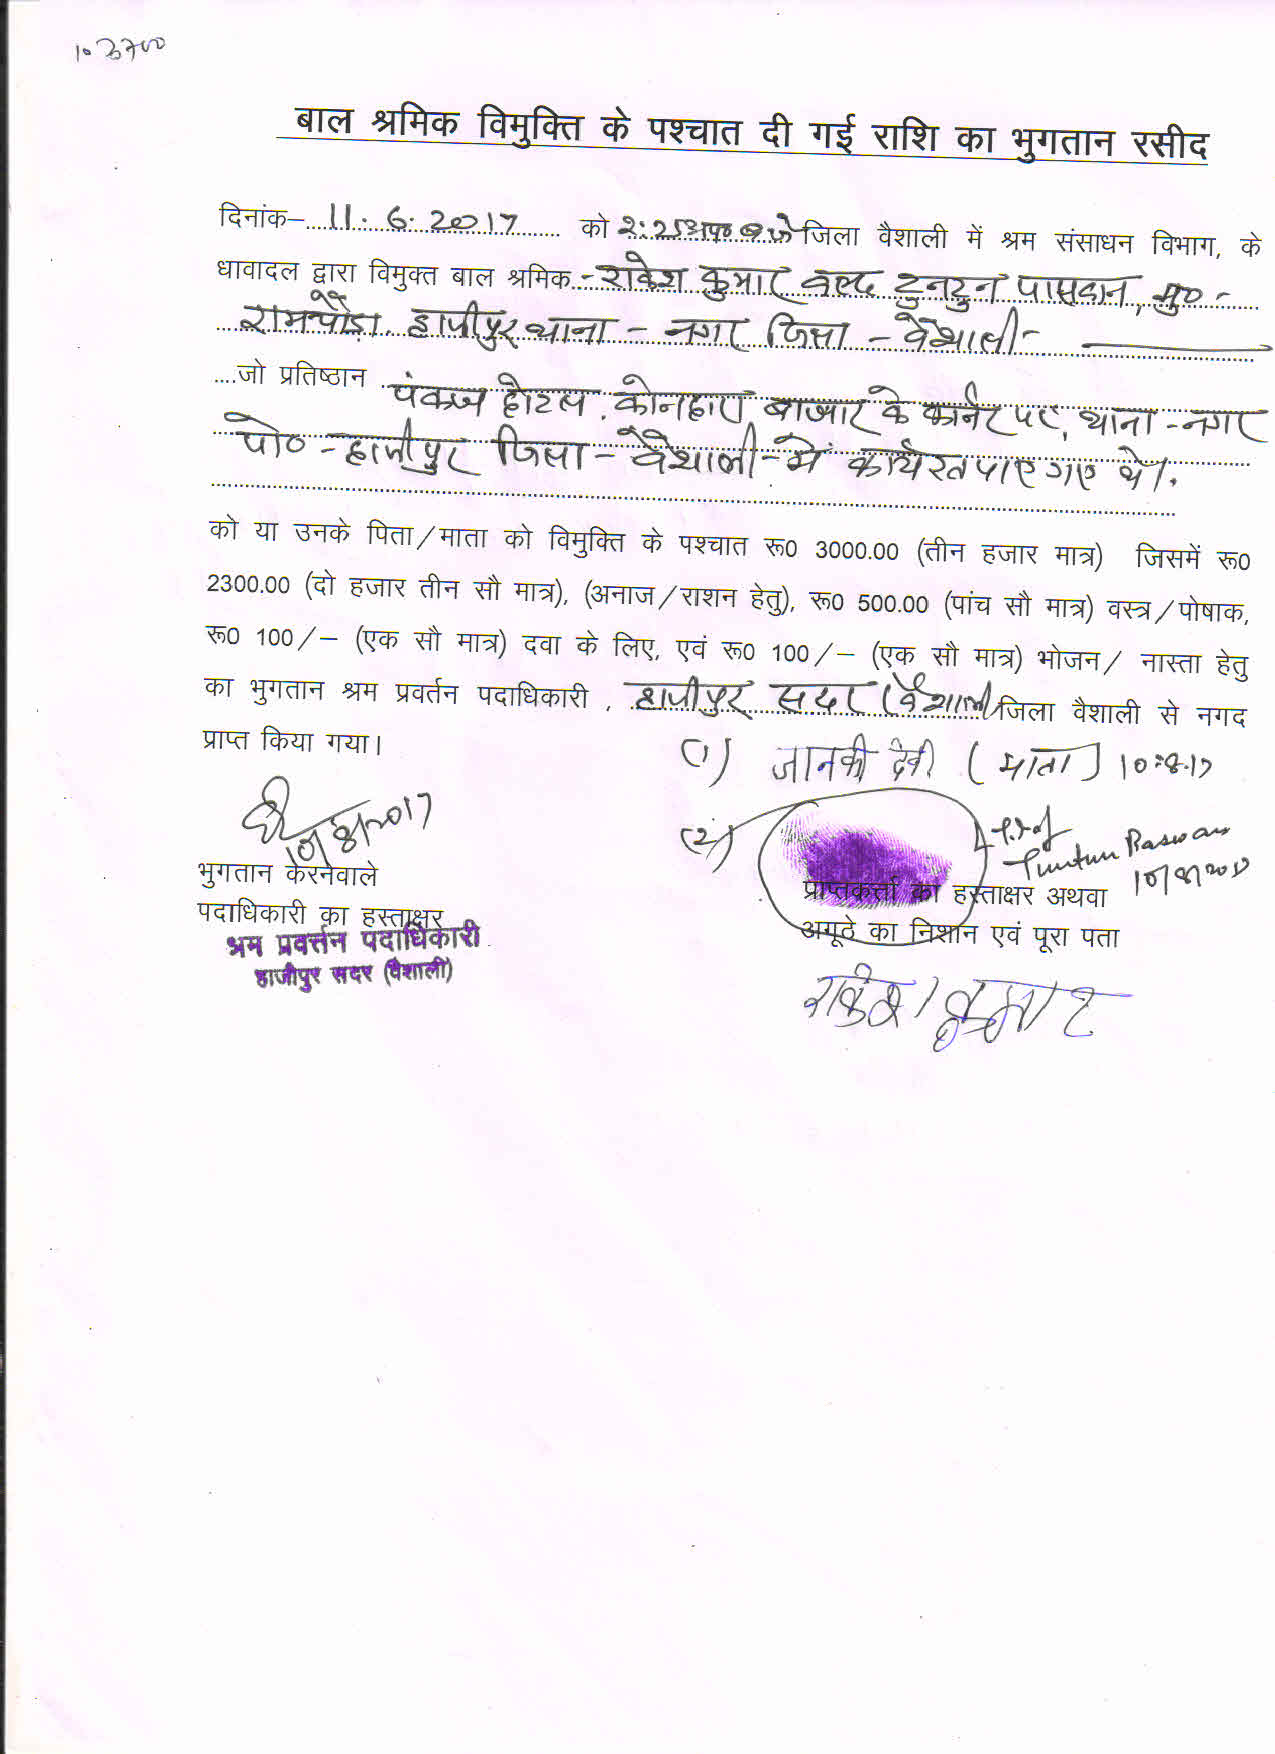 बाल श्रमिक विमुक्ति के पश्चात दी गई राशि का भुगतान रसीद
दिनांक– 11.6.2017 को 2:25 अप० बजे जिला वैशाली में श्रम संसाधन विभाग, के
धावादल द्वारा विमुक्त बाल श्रमिक - राकेश कुमार वल्द टुनटुन पासवान, मु० -
रामचौड़ा, हाजीपुर थाना - नगर जिला - वैशाली -
जो प्रतिष्ठान पंकज होटल, कोनहारा बाजार के कॉर्नर पर, थाना - नगर
पो० - हाजीपुर जिला - वैशाली - में कार्यरत पाए गए थे।
को या उनके पिता/माता को विमुक्ति के पश्चात रू0 3000.00 (तीन हजार मात्र) जिसमें रू0
2300.00 (दो हजार तीन सौ मात्र), (अनाज/राशन हेतु), रू0 500.00 (पांच सौ मात्र) वस्त्र/पोषाक,
रू0 100/– (एक सौ मात्र) दवा के लिए, एवं रू0 100/– (एक सौ मात्र) भोजन/ नास्ता हेतु
का भुगतान श्रम प्रवर्तन पदाधिकारी , हाजीपुर सदर (वैशाली) जिला वैशाली से नगद
प्राप्त किया गया।
(1) जानकी देवी (माता) 10.8.17
10/8/2017
(2) L.T.I of
Tuntun Paswan
10/8/2017
भुगतान करनेवाले
पदाधिकारी का हस्ताक्षर
श्रम प्रवर्त्तन पदाधिकारी
हाजीपुर सदर (वैशाली)
प्राप्तकर्त्ता का हस्ताक्षर अथवा
अगूठे का निशान एवं पूरा पता
राकेश कुमार